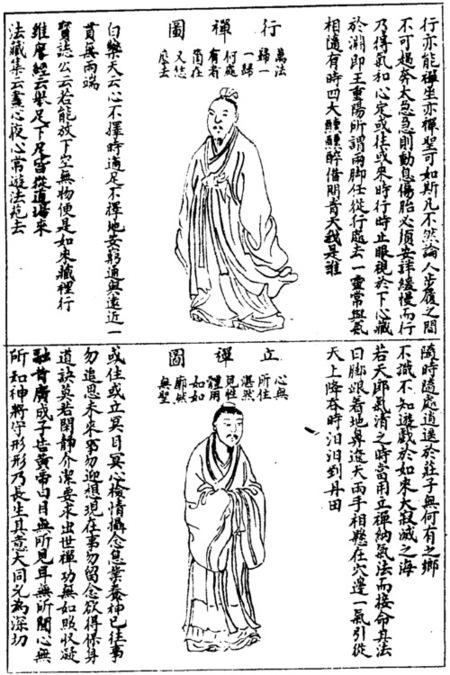 行亦能禪坐亦禪聖可如斯凡不然論人步履之間
不可趨奔太急急則動息傷胎必須安詳緩慢而行
乃得氣和心定或徃或來時行時止眼視於下心藏
於淵即王重陽所謂兩脚任從行處去一靈常與氣
相隨有時四大醺醺醉借問青天我是誰
行禪圖
萬法
歸一
一歸
何處
有者
箇在
又恁
麼去
白樂天云心不擇時適足不擇地安窮通與遠近一
貫無兩端
寶誌公云若能放下空無物便是如來藏裡行
維摩經云舉足下足皆從道場來
法藏集云晝心夜心常遊法苑去
隨時隨處逍遙於莊子無何有之鄉
不識不知遊戲於如來大寂滅之海
若天朗氣清之時當用立禪納氣法而接命其法
曰脚跟着地鼻遼天兩手相懸在穴邊一氣引從
天上降吞時汩汩到丹田
立禪圖
心無
所住
湛然
見性
體用
如如
廓然
無聖
或住或立冥目冥心檢情攝念息業養神已往事
勿追思未來事勿迎想現在事勿留念欲得保身
道訣莫若閑靜介潔要求出世禪功無如照收凝
融昔廣成子告黃帝曰目無所見耳無所聞心無
所知神將守形形乃長生其意大同允為深切